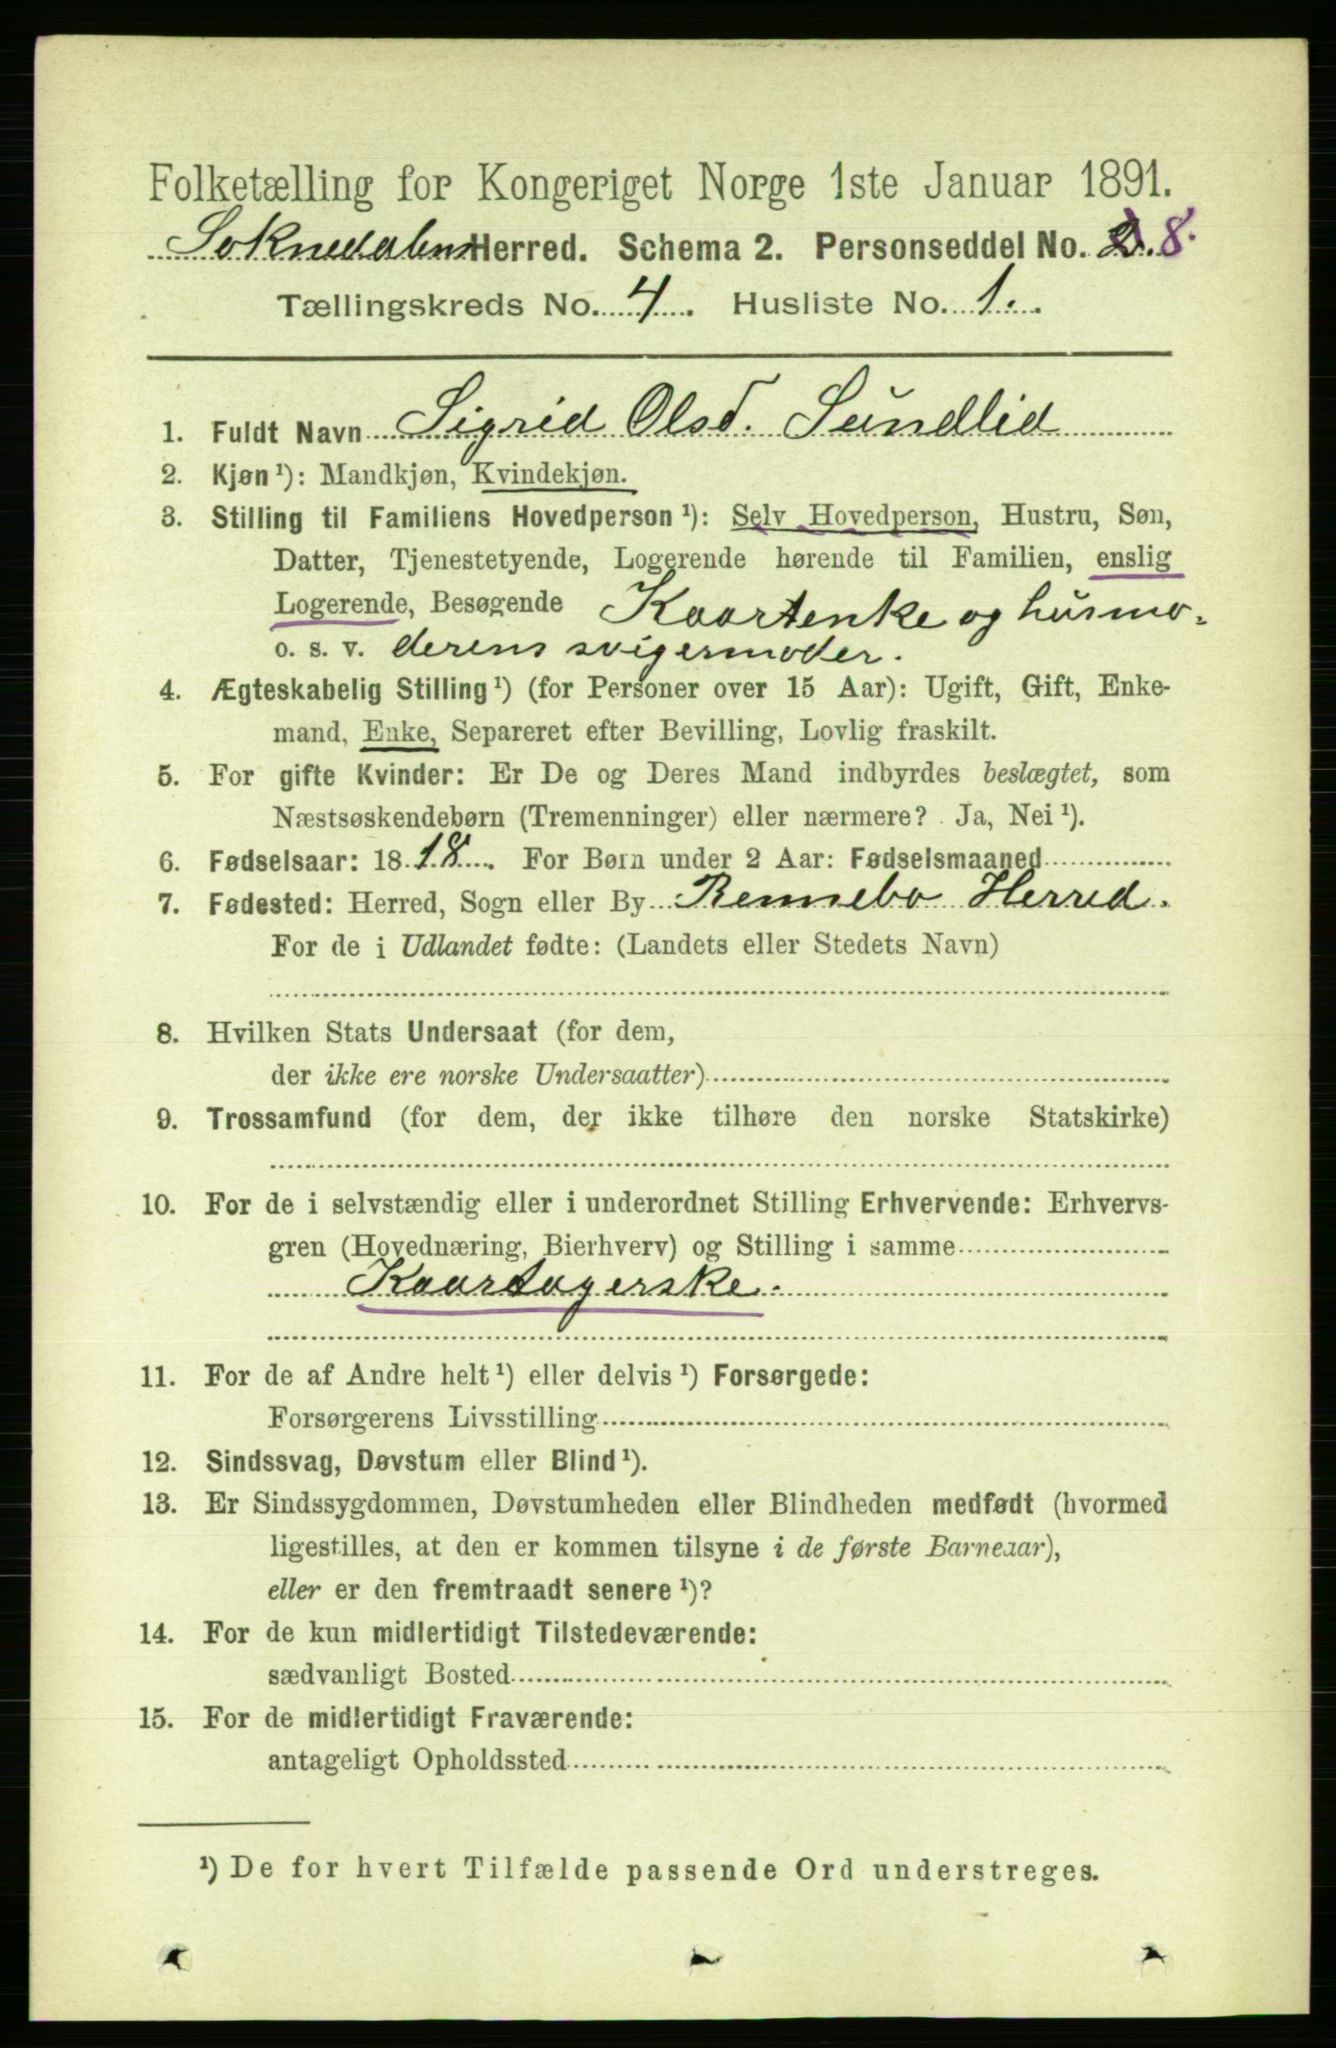 Folketælling for Kongeriget Norge 1ste Januar 1891.
Soknedalens Herred. Schema 2. Personseddel No. 2. 8.
Tællingskreds No. 4. Husliste No. 1.
1. Fuldt Navn Sigrid Olsd. Sundlid
2. Kjøn ¹): Mandkjøn, Kvindekjøn.
3. Stilling til Familiens Hovedperson ¹): Selv Hovedperson, Hustru, Søn,
Datter, Tjenestetyende, Logerende hørende til Familien, enslig
Logerende, Besøgende Kaarenke og husmo-
o. s. v. derens svigermoder.
4. Ægteskabelig Stilling ¹) (for Personer over 15 Aar): Ugift, Gift, Enke-
mand, Enke, Separeret efter Bevilling, Lovlig fraskilt.
5. For gifte Kvinder: Er De og Deres Mand indbyrdes beslægtet, som
Næstsøskendebørn (Tremenninger) eller nærmere? Ja, Nei ¹).
6. Fødselsaar: 1818. For Børn under 2 Aar: Fødselsmaaned
7. Fødested: Herred, Sogn eller By Rennebo Herred.
For de i Udlandet fødte: (Landets eller Stedets Navn)
8. Hvilken Stats Undersaat (for dem,
der ikke ere norske Undersaatter)
9. Trossamfund (for dem, der ikke tilhøre den norske Statskirke)
10. For de i selvstændig eller i underordnet Stilling Erhvervende: Erhvervs-
gren (Hovednæring, Bierhverv) og Stilling i samme
Kaartagerske.
11. For de af Andre helt ¹) eller delvis ¹) Forsørgede:
Forsørgerens Livsstilling
12. Sindssvag, Døvstum eller Blind ¹).
13. Er Sindssygdommen, Døvstumheden eller Blindheden medfødt (hvormed
ligestilles, at den er kommen tilsyne i de første Barneaar),
eller er den fremtraadt senere ¹)?
14. For de kun midlertidigt Tilstedeværende:
sædvanligt Bosted
15. For de midlertidigt Fraværende:
antageligt Opholdssted
¹) De for hvert Tilfælde passende Ord understreges.